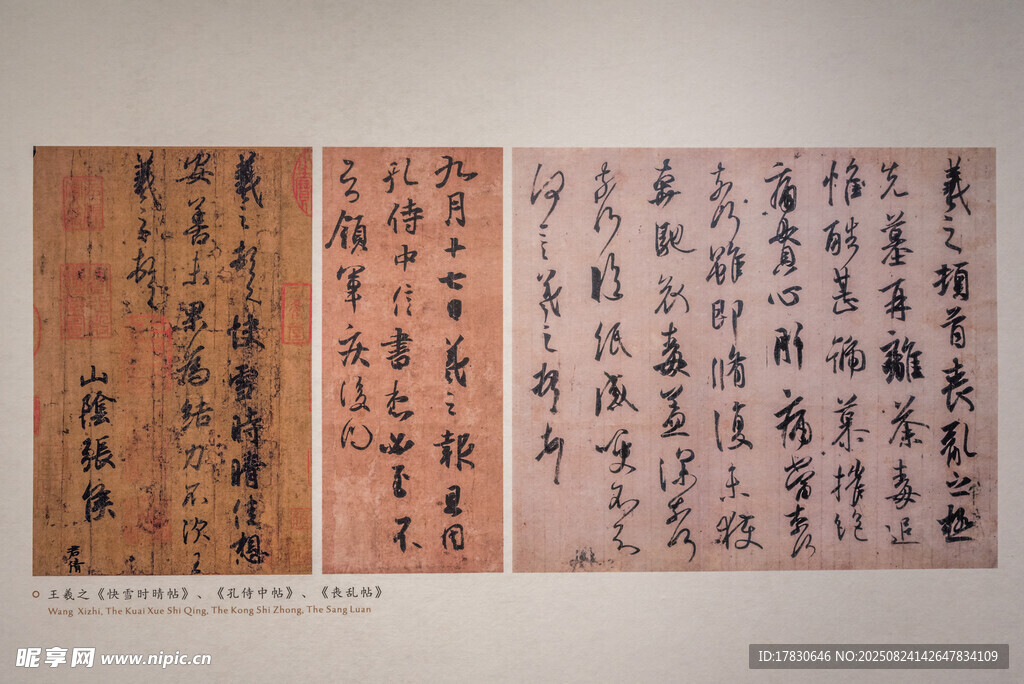 羲之頓首快雪時晴佳想
安善未果為結力不次王
羲之頓首
山陰張侯
君倩
九月十七日羲之報且因
孔侍中信書想必至不
知領軍疾後問
羲之頓首喪亂之極
先墓再離荼毒追
惟酷甚號慕摧絕
痛貫心肝痛當奈何
奈何雖即脩復未獲
奔馳哀毒益深奈何
奈何臨紙感哽不知
何言羲之頓首頓首
王羲之《快雪时晴帖》、《孔侍中帖》、《丧乱帖》
Wang Xizhi, The Kuai Xue Shi Qing, The Kong Shi Zhong, The Sang Luan
昵享网 www.nipic.cn
ID:17830646 NO:20250824142647834109